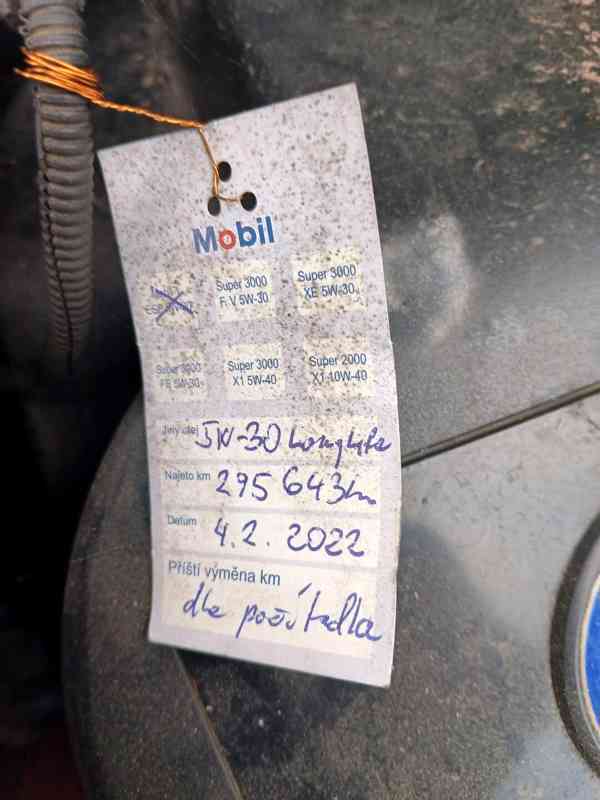 Mobil
Super 3000
F.V 5W-30
Super 3000
XE 5W-30
Super 3000
FE 5W-30
Super 3000
X1 5W-40
Super 2000
X1 10W-40
Jiný olej 5W-30 Longlife
Najeto km 295 643 km
Datum 4.2. 2022
Příští výměna km
dle počítadla